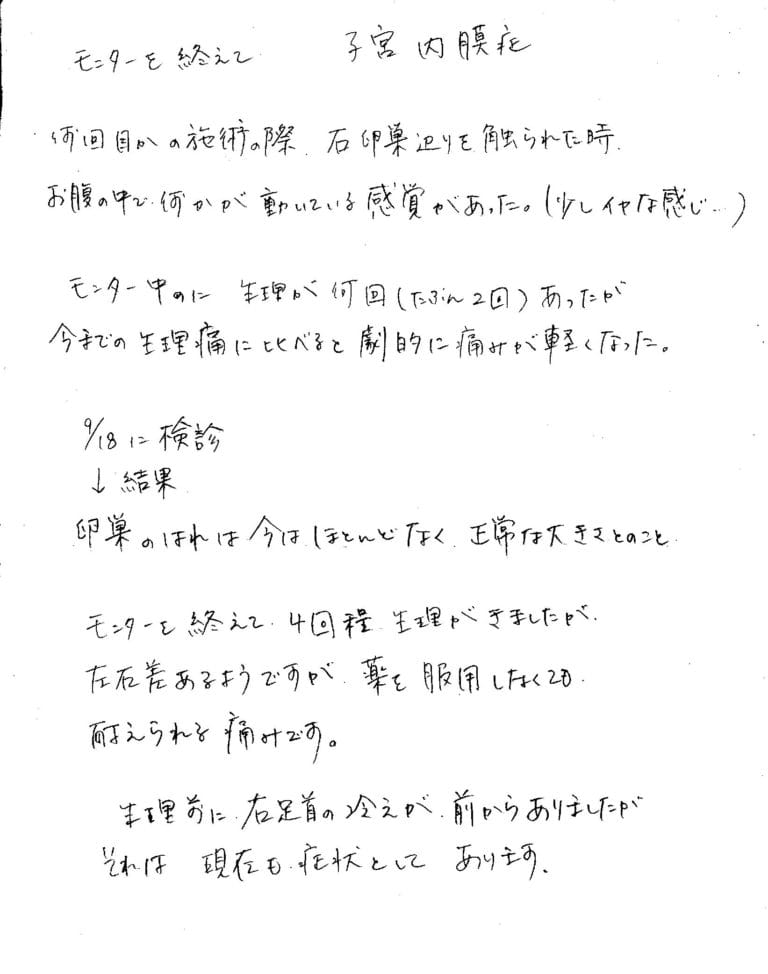 モニターを終えて 子宮内膜症
何回目かの施術の際、右卵巣辺りを触られた時、
お腹の中で何かが動いている感覚があった。(少しイヤな感じ…)
モニター中のに 生理が何回(たぶん2回)あったが
今までの生理痛に比べると劇的に痛みが軽くなった。
9/18に検診
↓結果
卵巣のはれは今はほとんどなく、正常な大きさとのこと
モニターを終えて、4回程、生理がきましたが、
左右差あるようですが、薬を服用しなくても、
耐えられる痛みです。
生理前に、右足首の冷えが、前からありましたが
それは 現在も、症状として あります。